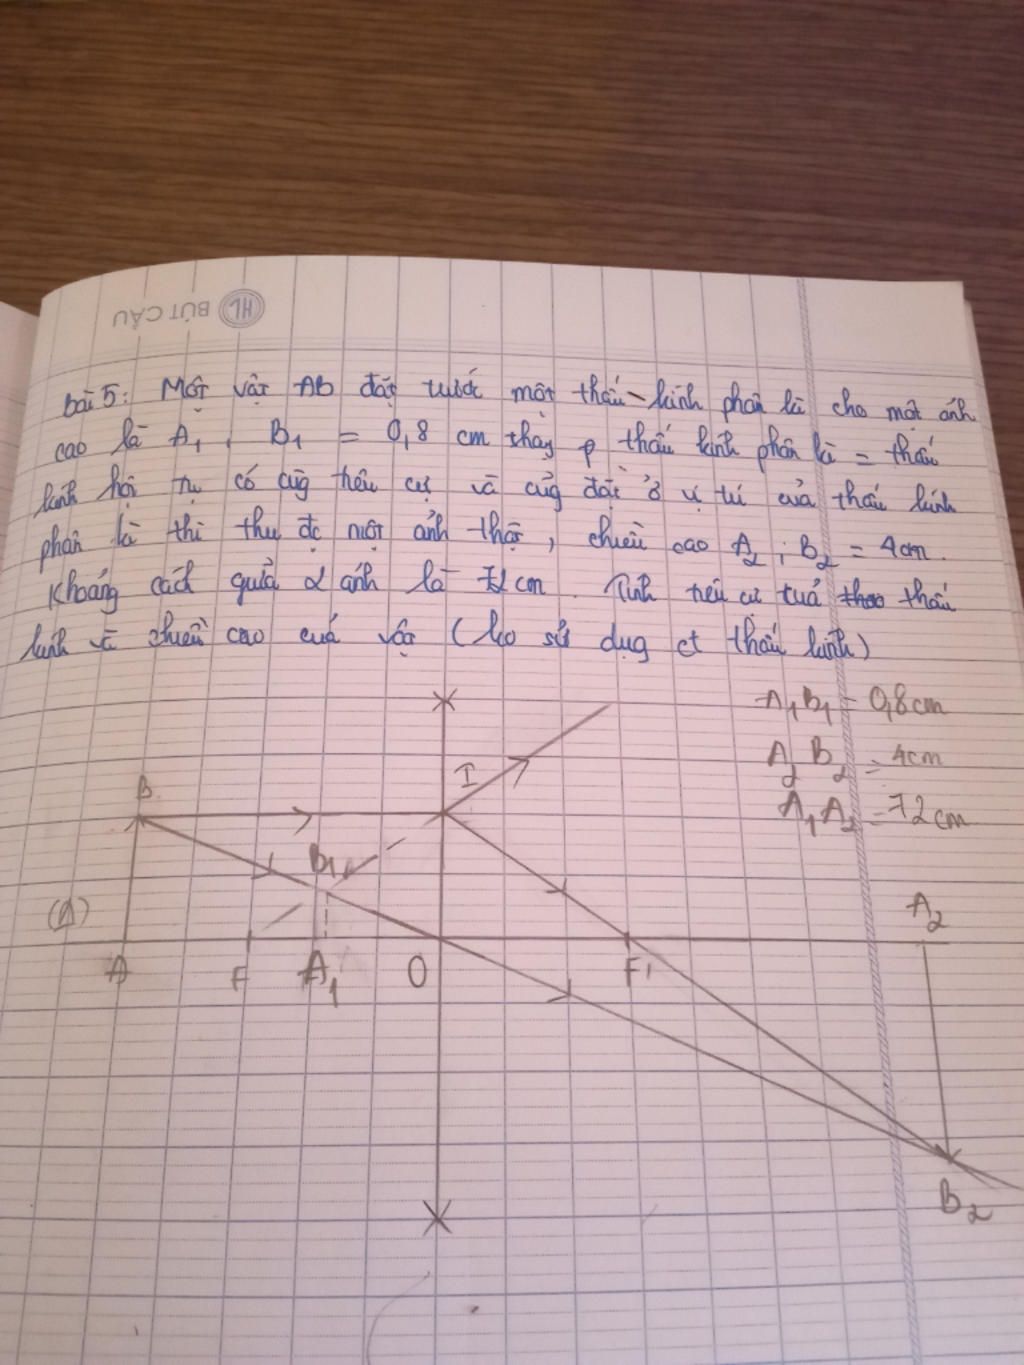 HL BÚT CẬU
bài 5: Một vật AB đặt trước một thấu kính phân kì cho một ảnh
cao là A1, B1 = 0,8 cm thay p thấu kính phân kì = thấu
kính hội tụ có cùg tiêu cự và cũg đặt ở vị trí của thấu kính
phân kì thì thu đc một ảnh thật, chiều cao A2; B2 = 4cm.
Khoảng cách giữa 2 ảnh là 72cm. Tính tiêu cự thấu
kính và chiều cao của vật (ko sử dụg ct thấu kính)
A1B1 = 0,8cm
A2B2 = 4cm
A1A2 = 72cm
B
I
B1
(Δ)
A2
A
F
A1
O
F'
B2